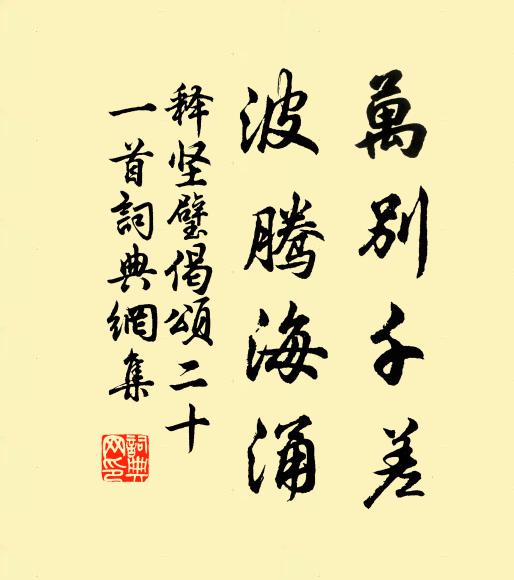 萬別千差
波腾海涌
释坚璧偈頌二十
一首詞典網集
詞典
网印